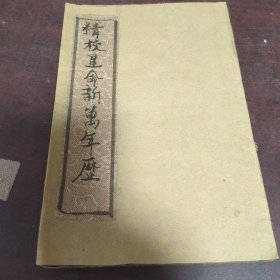 精校星命新萬年歷